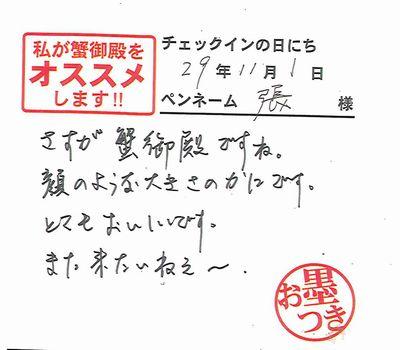 私が蟹御殿を
オススメ
します!!
チェックインの日にち
29年11月1日
ペンネーム 張 様
さすが蟹御殿ですね。
顔のような大きさのかにです。
とてもおいしいです。
また来たいねぇ〜.
お墨つき